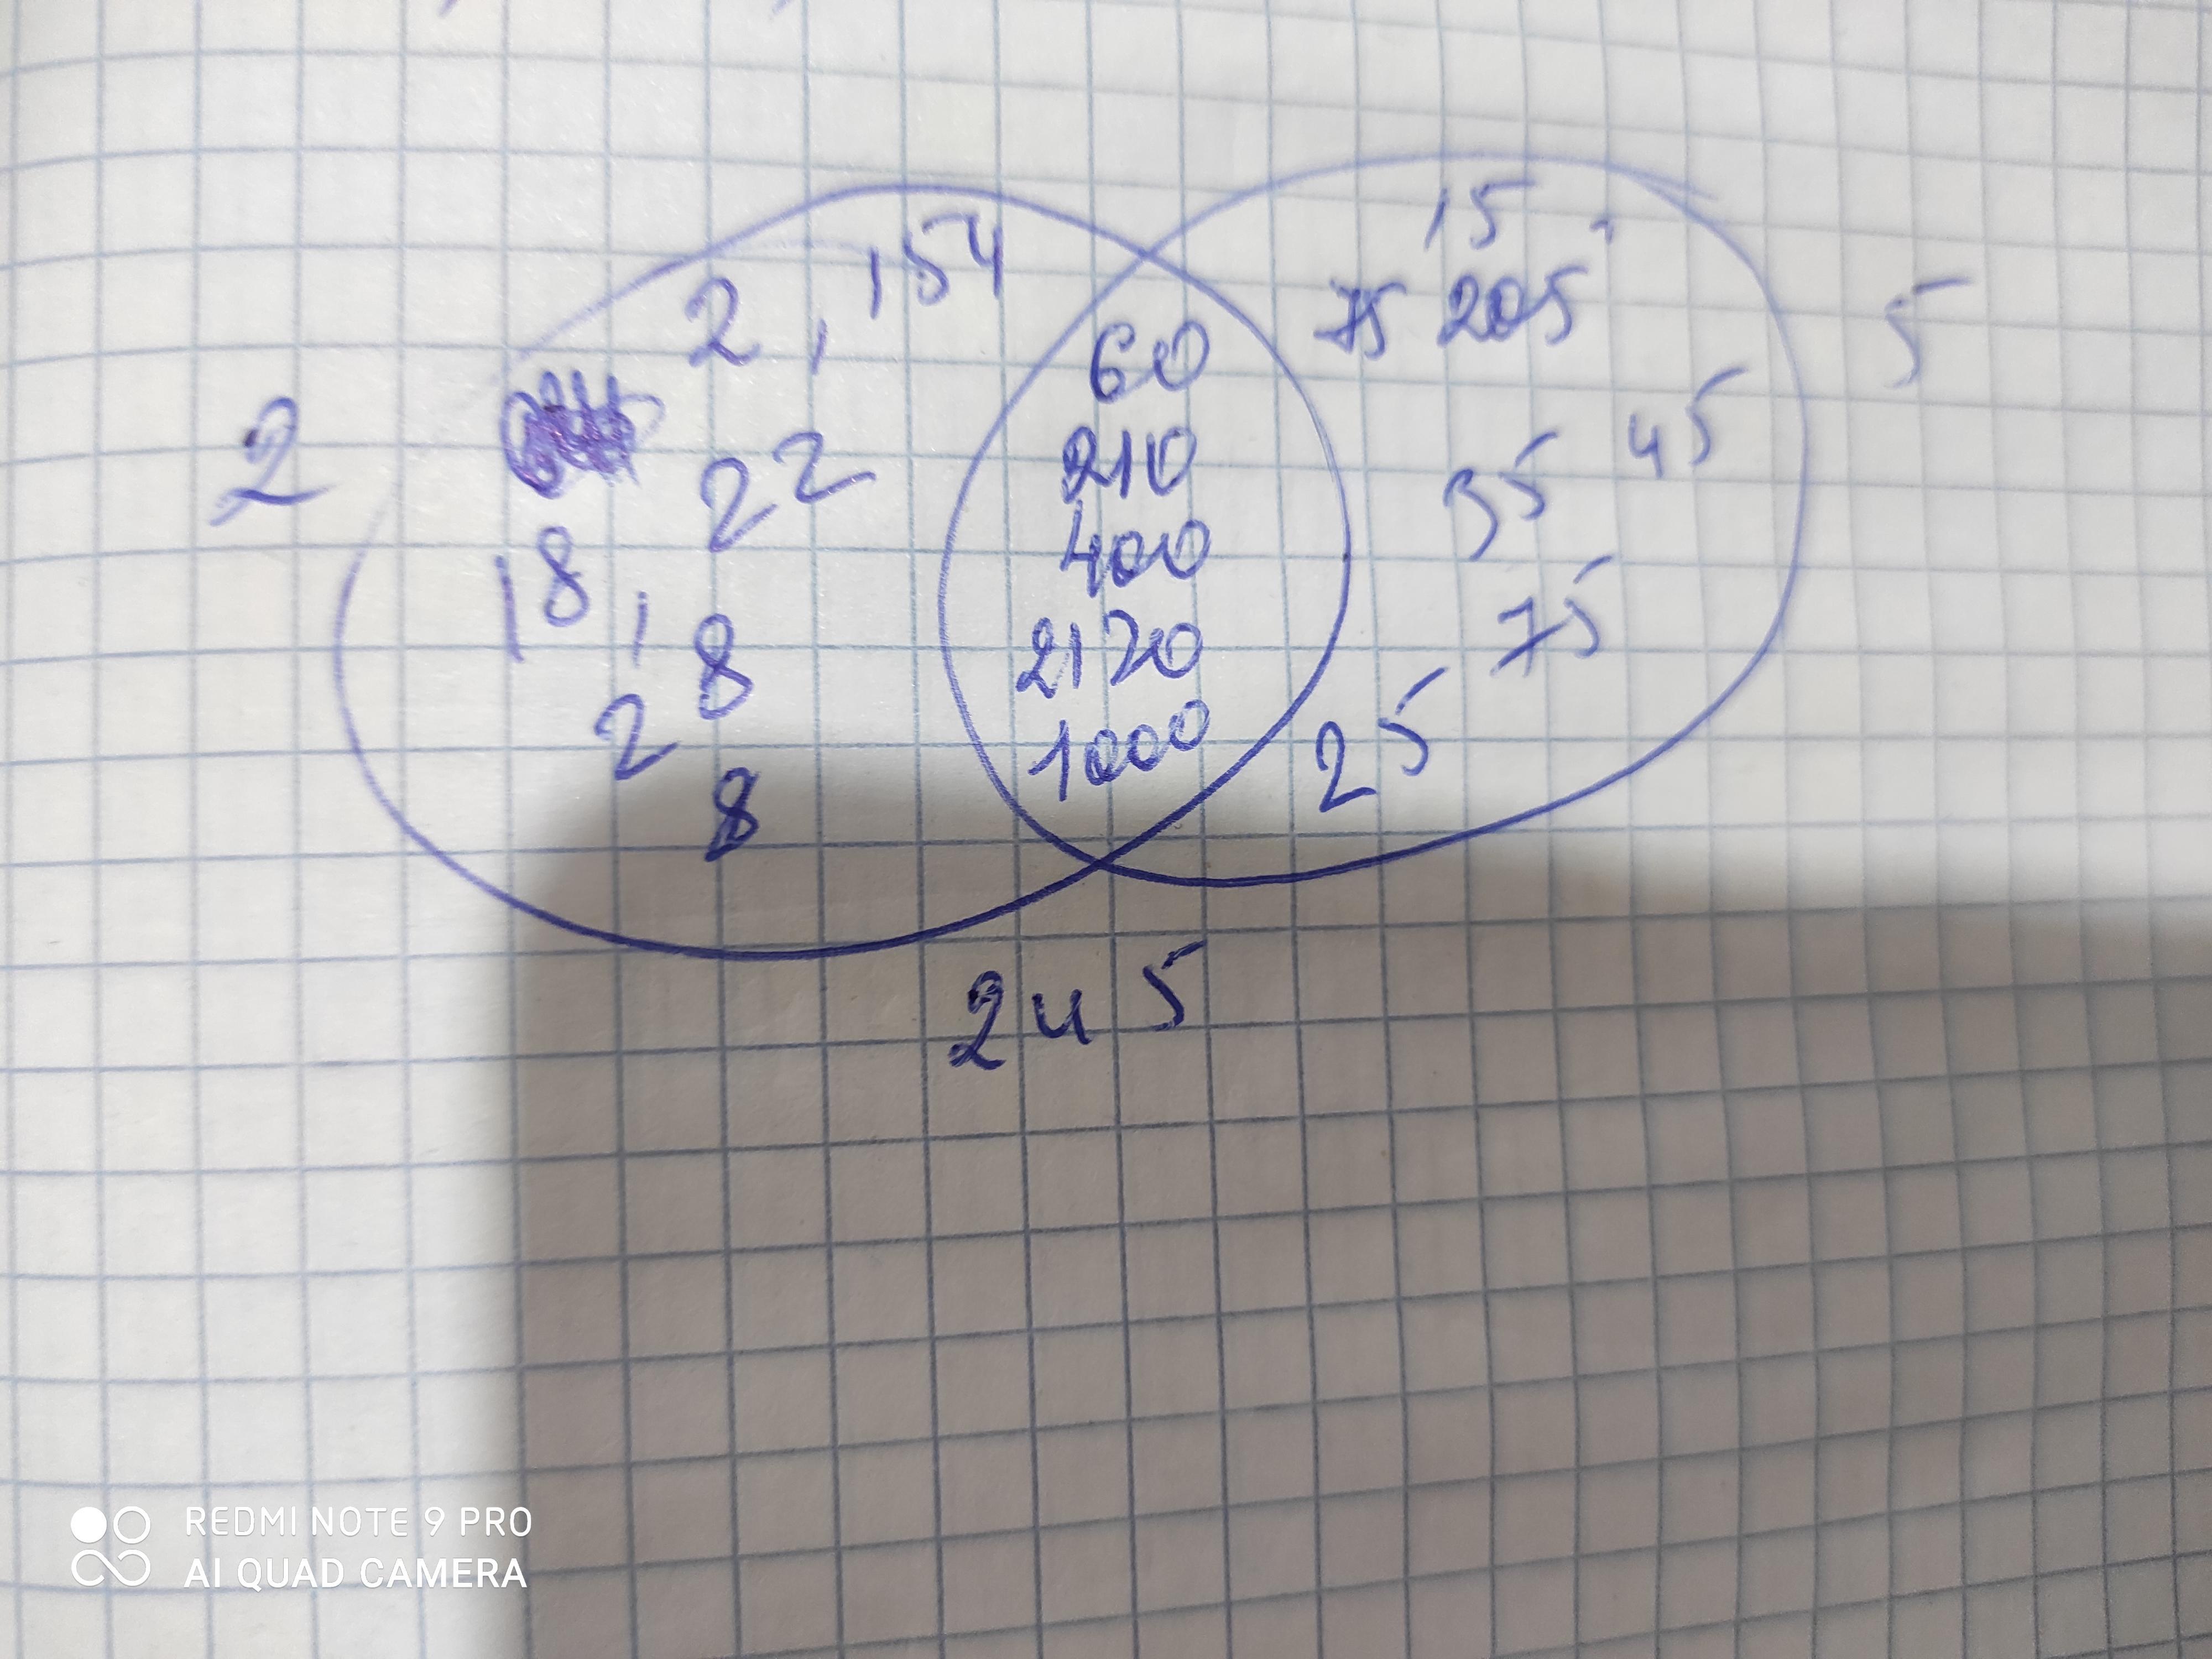 2
2 , 154
22
18 , 8
2 8
60
210
400
2170
1000
15
75 205
35 45
75
25
5
2 и 5
REDMI NOTE 9 PRO
AI QUAD CAMERA